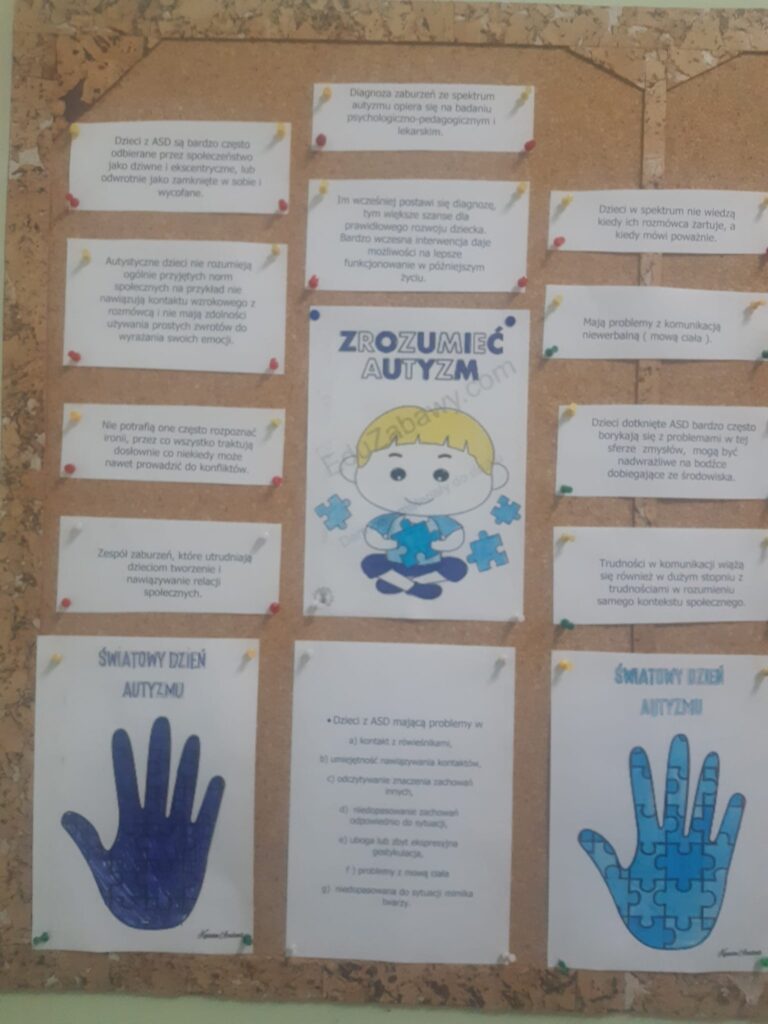 Dzieci z ASD są bardzo często
odbierane przez społeczeństwo
jako dziwne i ekscentryczne, lub
odwrotnie jako zamknięte w sobie i
wycofane.
Autystyczne dzieci nie rozumieją
ogólnie przyjętych norm
społecznych na przykład nie
nawiązują kontaktu wzrokowego z
rozmówcą i nie mają zdolności
używania prostych zwrotów do
wyrażania swoich emocji.
Nie potrafią one często rozpoznać
ironii, przez co wszystko traktują
dosłownie co niekiedy może
nawet prowadzić do konfliktów.
Zespół zaburzeń, które utrudniają
dzieciom tworzenie i
nawiązywanie relacji
społecznych.
ŚWIATOWY DZIEŃ
AUTYZMU
Diagnoza zaburzeń ze spektrum
autyzmu opiera się na badaniu
psychologiczno-pedagogicznym i
lekarskim.
Im wcześniej postawi się diagnozę,
tym większe szanse dla
prawidłowego rozwoju dziecka.
Bardzo wczesna interwencja daje
możliwości na lepsze
funkcjonowanie w późniejszym
życiu.
ZROZUMIEĆ
AUTYZM
EduZabawy.com
• Dzieci z ASD mającą problemy w
a) kontakt z rówieśnikami,
b) umiejętność nawiązywania kontaktów,
c) odczytywanie znaczenia zachowań
innych,
d) niedopasowanie zachowań
odpowiednio do sytuacji,
e) uboga lub zbyt ekspresyjna
gestykulacja,
f) problemy z mową ciała
g) niedopasowana do sytuacji mimika
twarzy.
Dzieci w spektrum nie wiedzą
kiedy ich rozmówca żartuje, a
kiedy mówi poważnie.
Mają problemy z komunikacją
niewerbalną ( mową ciała ).
Dzieci dotknięte ASD bardzo często
borykają się z problemami w tej
sferze zmysłów, mogą być
nadwrażliwe na bodźce
dobiegające ze środowiska.
Trudności w komunikacji wiążą
się również w dużym stopniu z
trudnościami w rozumieniu
samego kontekstu społecznego.
ŚWIATOWY DZIEŃ
AUTYZMU